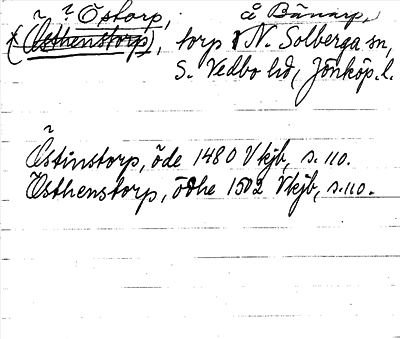 ? Östorp, å Bänarp,
* (Østhenstorp), torp N. Solberga sn,
S. Vedbo hd, Jönköp. l.
Östinstorp, öde 1480 Vkjb, s. 110.
Östhenstorp, ödhe 1502 Vkjb, s. 110.